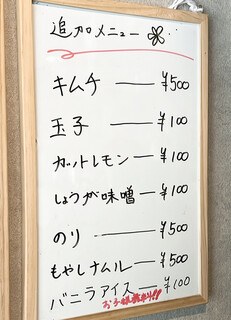 追加メニュー
キムチ ― ¥500
玉子 ― ¥100
カットレモン ― ¥100
しょうが味噌 ― ¥100
のり ― ¥500
もやしナムル ― ¥500
バニラアイス ― ¥100